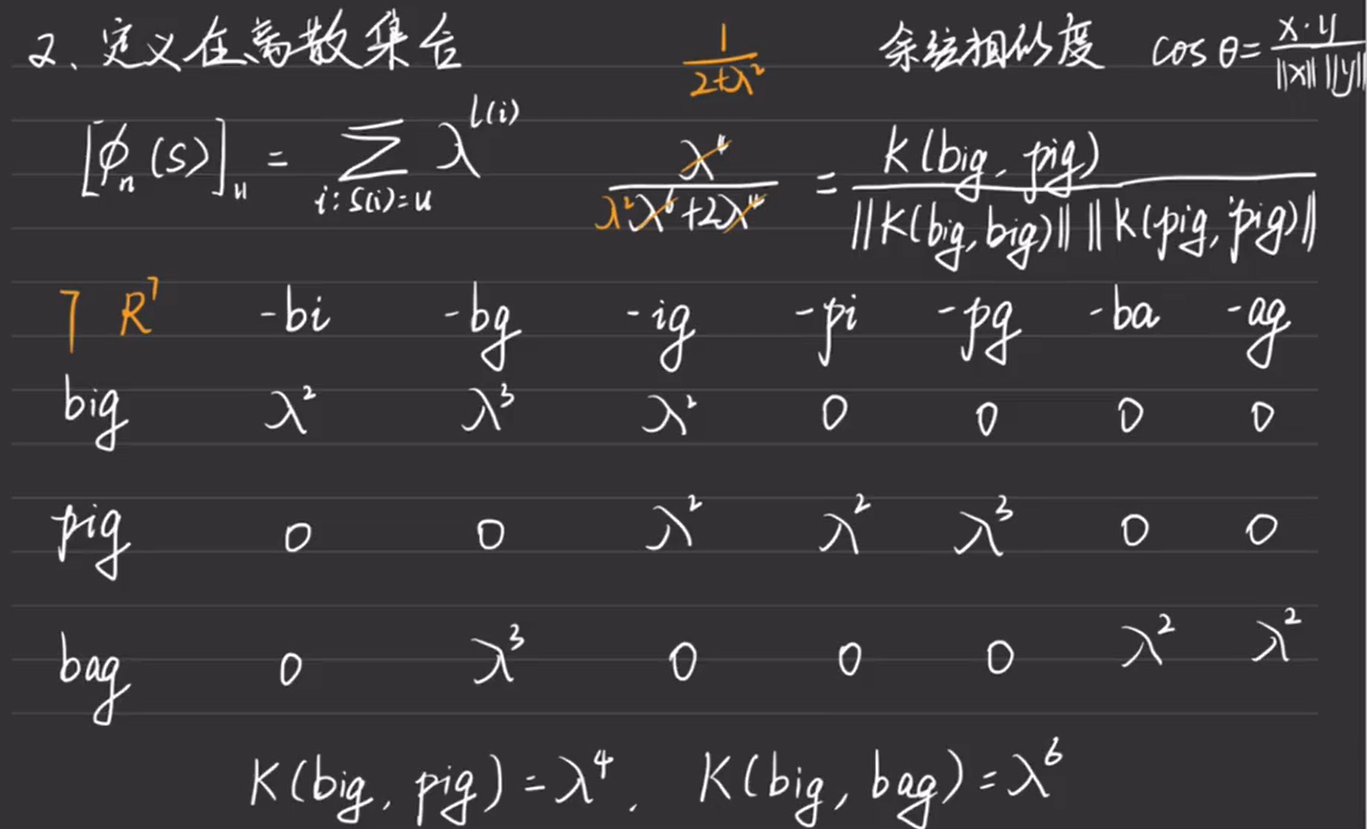 2、定义在离散集合
1/(2+λ²)
余弦相似度 cos θ = x·y / ‖x‖ ‖y‖
[ϕₙ(s)]ᵤ = ∑ λ^l(i)
i: s(i)=u
λ⁴ / (λ² λ⁶+2λ⁴) = K(big, pig) / ‖K(big, big)‖ ‖K(pig, pig)‖
7 R⁷ -bi -bg -ig -pi -pg -ba -ag
big λ² λ³ λ² 0 0 0 0
pig 0 0 λ² λ² λ³ 0 0
bag 0 λ³ 0 0 0 λ² λ²
K(big, pig) = λ⁴. K(big, bag) = λ⁶